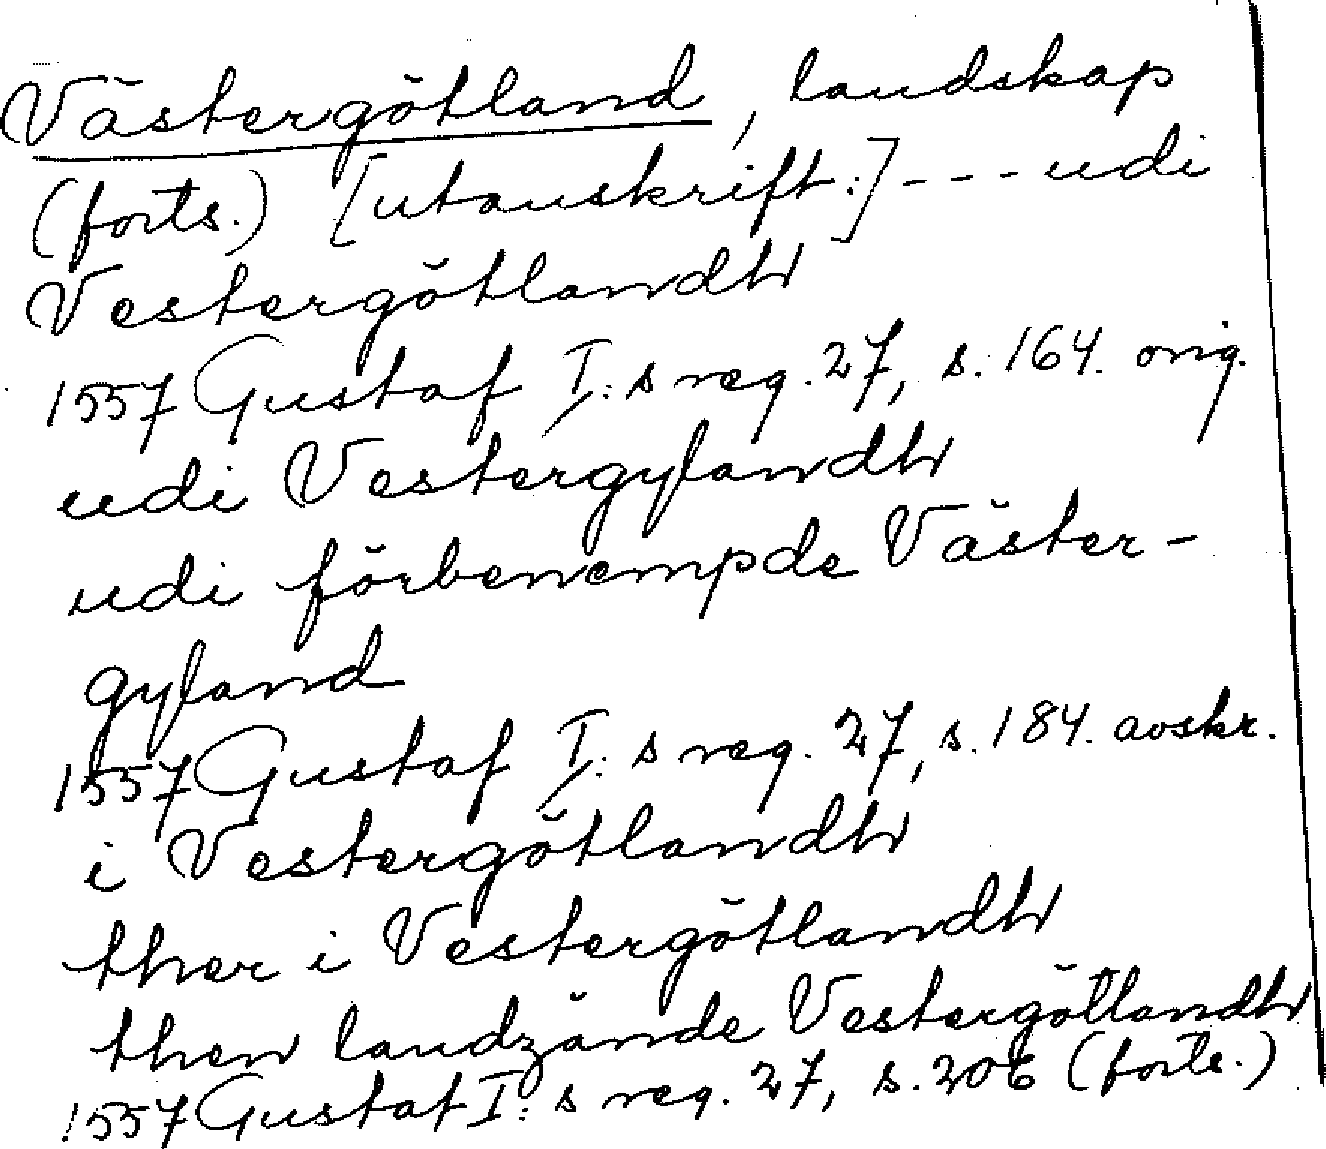 Västergötland, landskap
(forts.) [utanskrift:] - - - udi
Vestergötlandh
1557 Gustaf I:s reg. 27, s. 164. orig.
udi Vestergylandh
udi förbenempde Väster-
gyland
1557 Gustaf I:s reg. 27, s. 184. avskr.
i Vestergötlandh
ther i Vestergötlandh
then landzände Vestergötlandh
1557 Gustaf I:s reg. 27, s. 206 (forts.)